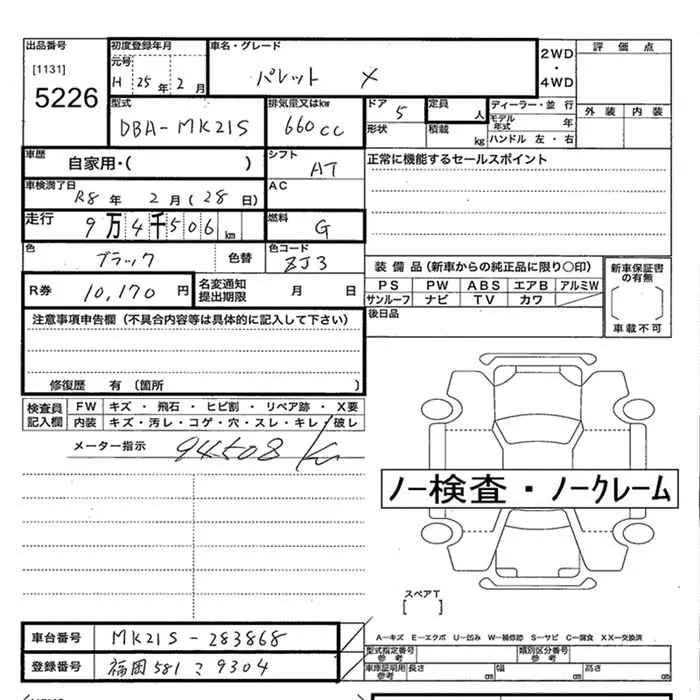 出品番号
[1131]
5226
初度登録年月
元号
H 25年 2月
車名・グレード
パレット X
2WD
・
4WD
評価点
外装 内装
型式
DBA-MK21S
排気量又はkw
660cc
ドア
5
形状
定員
人
積載
kg
ディーラー・並行
モデル年式 年
ハンドル 左・右
車歴
自家用・( )
シフト
AT
正常に機能するセールスポイント
車検満了日
R8年 2月(28日)
AC
走行
9万4千506km
燃料
G
色
ブラック
色替
色コード
ZJ3
装備品(新車からの純正品に限り○印)
PS PW ABS エアB アルミW
サンルーフ ナビ TV カワ
後日品
新車保証書の有無
[ ]
車載不可
R券
10,170円
名変通知
提出期限
月 日
注意事項申告欄(不具合内容等は具体的に記入して下さい)
修復歴 有〔箇所 〕
検査員
記入欄
FW キズ・飛石・ヒビ割・リペア跡・X要
内装 キズ・汚レ・コゲ・穴・スレ・キレ・破レ
メーター指示
94508 K
ノー検査・ノークレーム
スペアT
[ ]
車台番号
MK21S-283868
登録番号
福岡581こ9304
A-キズ E-エクボ U-凹み W-補修跡 S-サビ C-腐食 XX-交換済
型式指定番号
参考
類別区分番号
参考
車庫証明用
参考
長さ cm 幅 cm 高さ cm